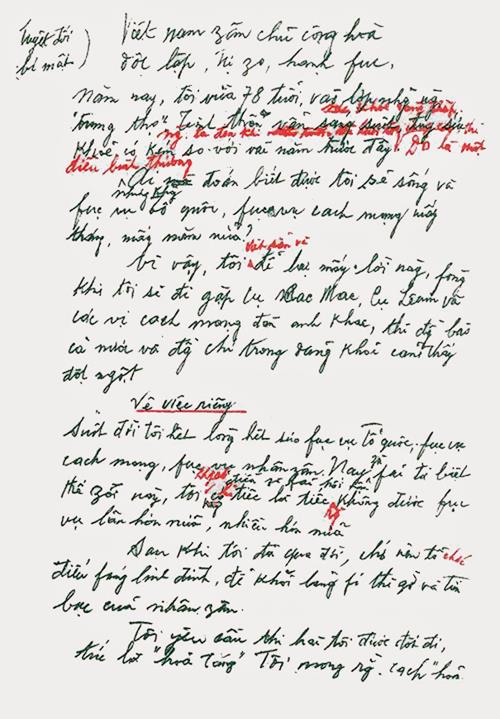 Tuyệt đối
bí mật
Việt nam zân chủ cộng hoà
độc lập, tự zo, hạnh fúc,
Năm nay, tôi vừa 78 tuổi, vào lớp những người
"trung thọ". Tinh thần vẫn sáng suốt, thân thể
khoẻ có kém so với vài năm trước đây. Đó là một
điều bình thường
Ai mà đoán biết được tôi sẽ sống và
fục vụ tổ quốc, fục vụ cách mạng mấy
tháng, mấy năm nữa?
Vì vậy, tôi viết sẵn để lại mấy lời này, fòng
khi tôi sẽ đi gặp cụ Mac, cụ Lenin và
các vị cách mạng đàn anh khác, thì đ.bào
cả nước và đ/chí trong đảng khỏi cảm thấy
đột ngột
Về việc riêng
Suốt đời tôi hết lòng hết sức fục vụ Tổ quốc, fục vụ
cách mạng, fục vụ nhân zân. Nay zù fải từ biệt
thế zới này, tôi không có điều gì fải hối hận
chỉ tiếc là tiếc rằng không được fục
vụ lâu hơn nữa, nhiều hơn nữa
Sau khi tôi đã qua đời, chớ nên tổ chức
điếu fúng linh đình, để khỏi lãng fí thì giờ và tiền
bạc của nhân zân.
Tôi yêu cầu thi hài tôi được đốt đi,
tức là "hoả táng" Tôi mong rằng cách "hoả